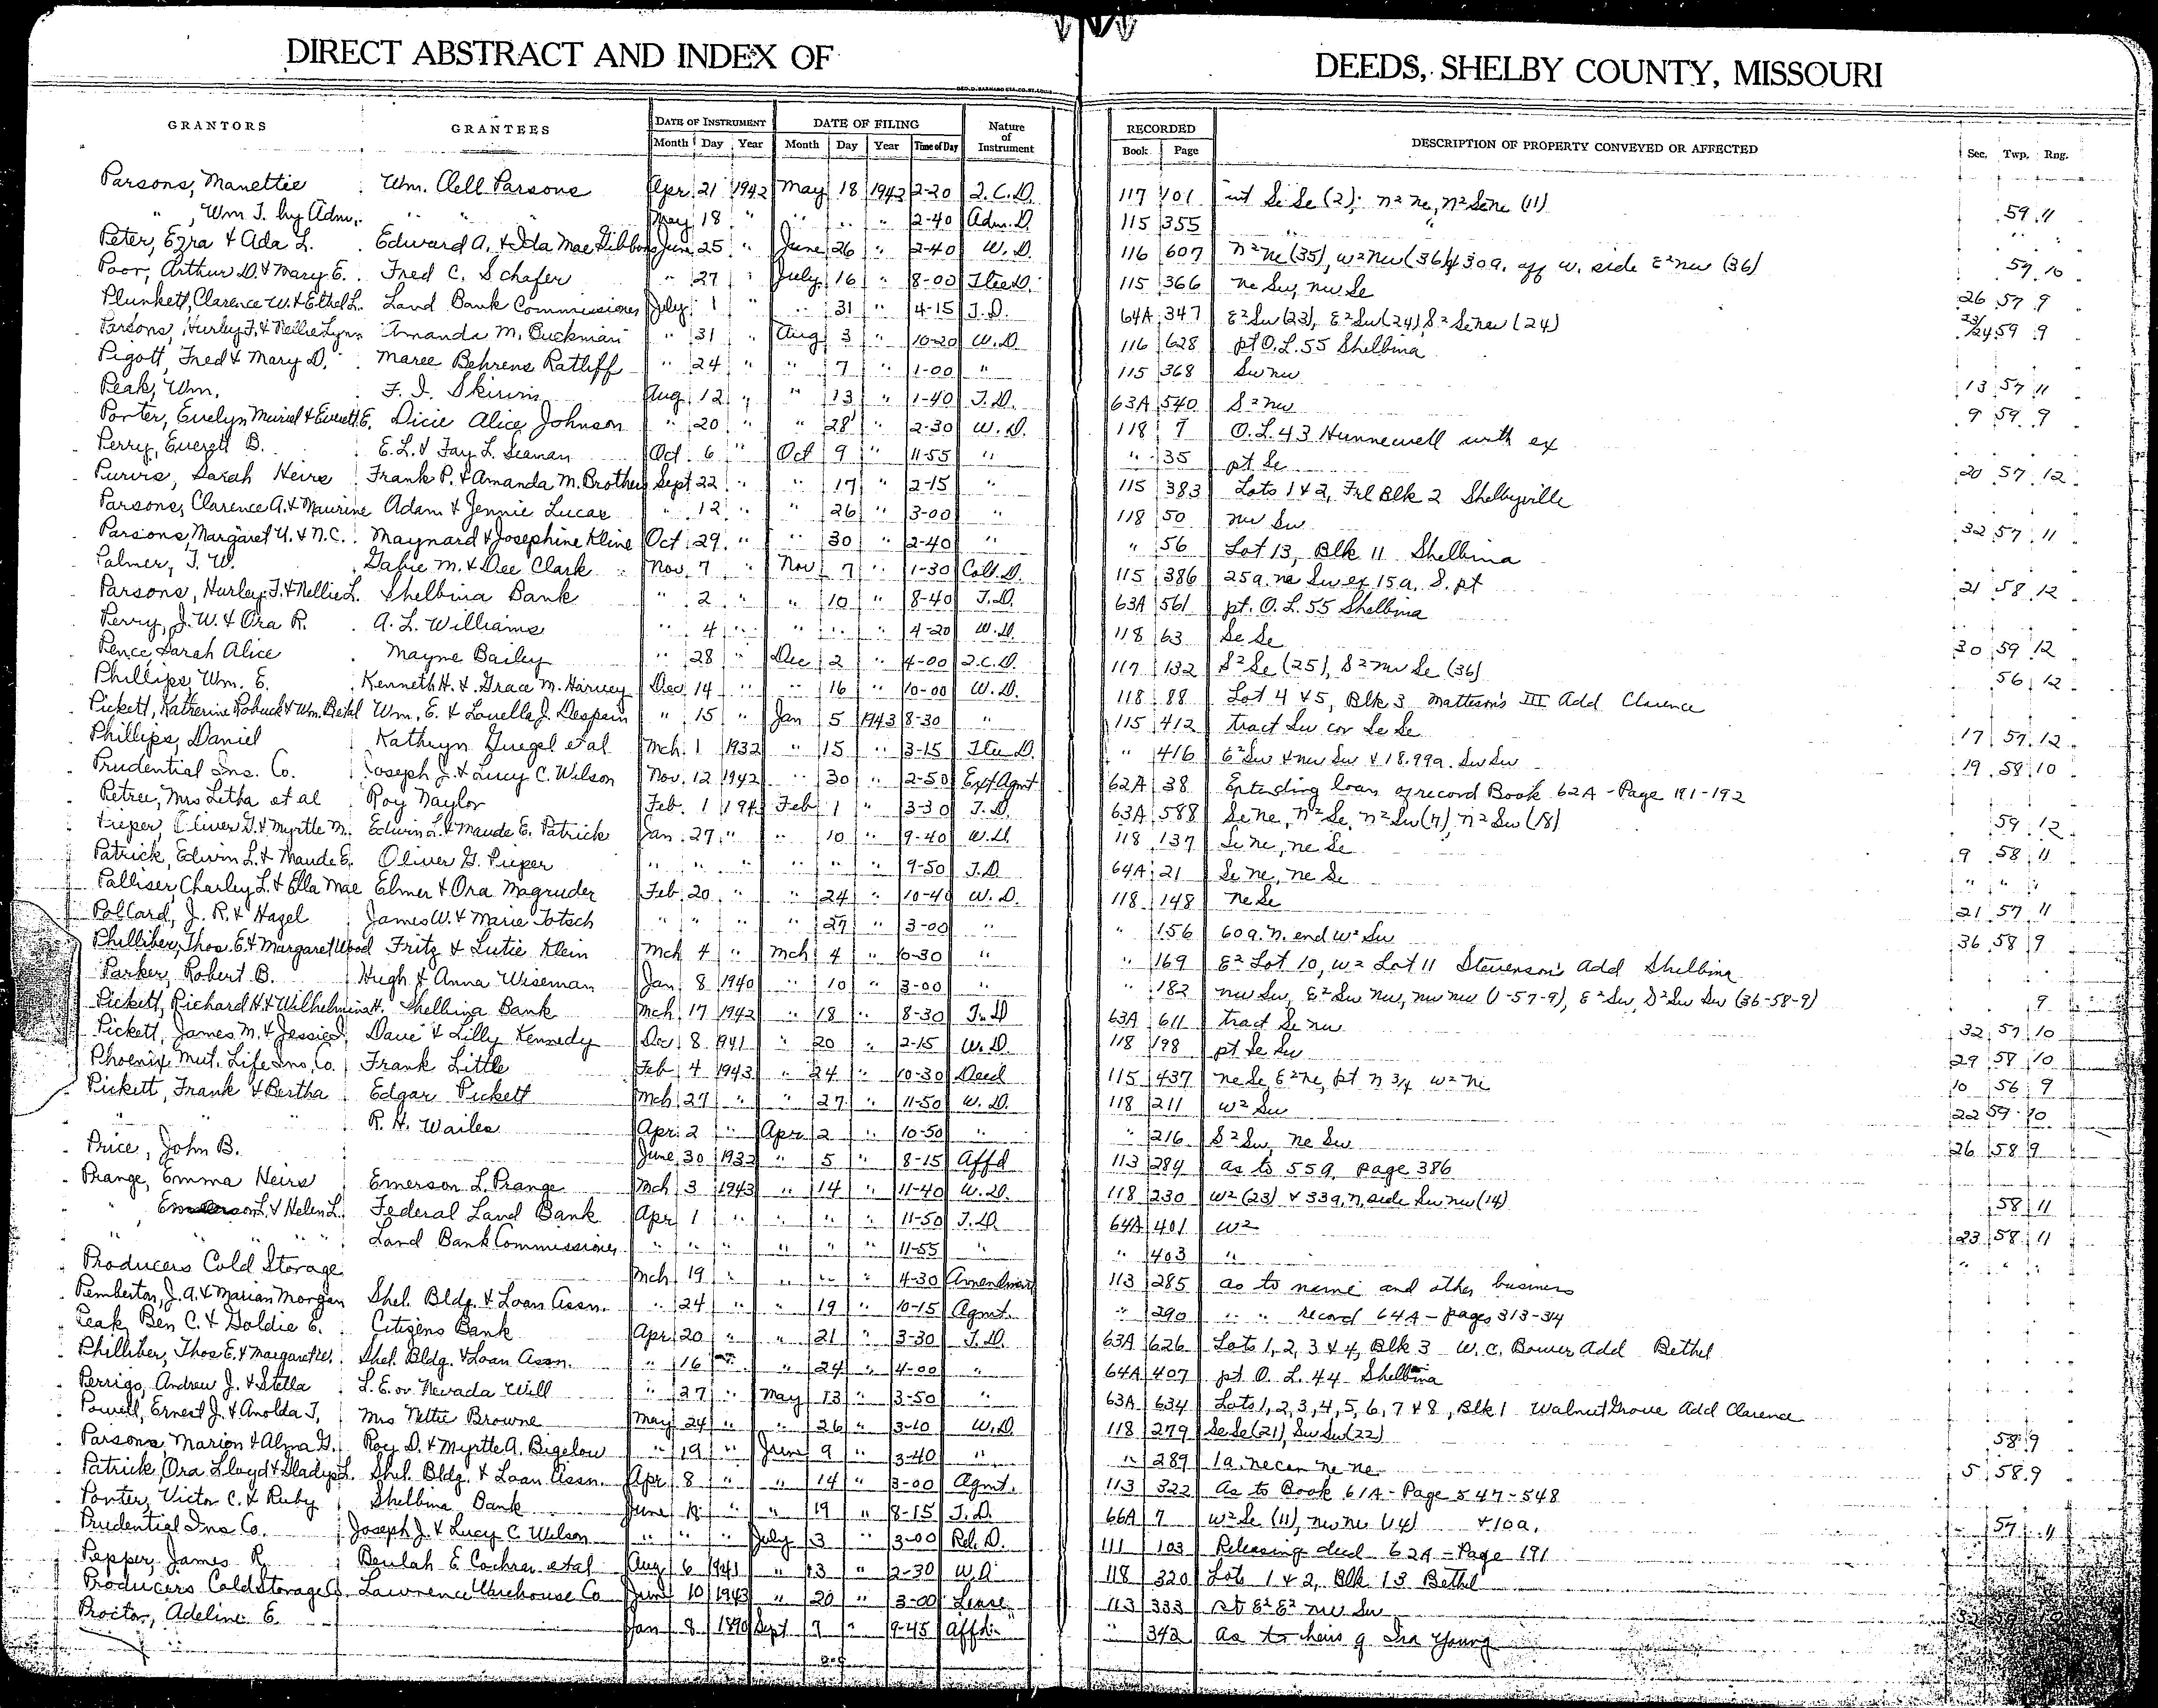 DIRECT ABSTRACT AND INDEX OF DEEDS, SHELBY COUNTY, MISSOURI
GRANTORS GRANTEES DATE OF INSTRUMENT DATE OF FILING Nature of Instrument RECORDED DESCRIPTION OF PROPERTY CONVEYED OR AFFECTED Sec. Twp. Rng.
Month Day Year Month Day Year Time of Day Book Page
Parsons, Manettie Wm. Clell Parsons Apr 21 1942 May 18 1942 2-20 Q.C.D. 117 101 int Se Se (2); n² ne, n² Se ne (11) 59 11
" , Wm T. by Adm. " " " May 18 " " " " 2-40 Adm. D. 115 355 " " "
Peter, Ezra & Ada L. Edward A. & Ida Mae Gibbons June 25 " June 26 " 2-40 W.D. 116 607 n² ne (35), w² nw (36) & 30a. off w. side E² nw (36) 59 10
Poor, Arthur D. & Mary E. Fred C. Schafer " 27 " July 16 " 8-00 Ttee D. 115 366 ne Sw, nw Se 26 57 9
Plunkett, Clarence W. & Ethel L. Land Bank Commissioner July 1 " " 31 " 4-15 T.D. 64A 347 E² Sw (23), E² Sw (24) S² Se nw (24) 23/24 59 9
Parsons, Hurley F. & Nellie Lynn Amanda M. Buckman " 31 " Aug 3 " 10-20 W.D. 116 628 pt O.L. 55 Shelbina
Pigott, Fred & Mary D. Maree Behrens Ratliff " 24 " " 7 " 1-00 " 115 368 Sw nw 13 57 11
Peak, Wm. F. I. Skirvin Aug 12 " " 13 " 1-40 T.D. 63A 540 S² nw 9 59 9
Porter, Evelyn Muriel & Everett E. Dicie Alice Johnson " 20 " " 28 " 2-30 W.D. 118 7 O.L. 43 Hunnewell with ex
Perry, Everett B. E.L. & Fay L. Seaman Oct 6 " Oct 9 " 11-55 " " 35 pt Se 20 57 12
Purvis, Sarah Heirs Frank P. & Amanda M. Brothers Sept 22 " " 17 " 2-15 " 115 383 Lots 1 & 2, Frl Blk 2 Shelbyville
Parsons, Clarence A. & Maurine Adam & Jennie Lucas " 12 " " 26 " 3-00 " 118 50 nw Sw 32 57 11
Parsons, Margaret U. & N.C. Maynard & Josephine Kline Oct 29 " " 30 " 2-40 " " 56 Lot 13, Blk 11 Shelbina
Palmer, T. W. Gabie M. & Dee Clark Nov 7 " Nov 7 " 1-30 Coll. D. 115 386 25a. ne Sw ex 15a. S. pt 21 58 12
Parsons, Hurley F. & Nellie L. Shelbina Bank " 2 " " 10 " 8-40 T.D. 63A 561 pt. O.L. 55 Shelbina
Perry, J.W. & Ora R. A. L. Williams " 4 " " " " 4-20 W.D. 118 63 Se Se 30 59 12
Pence, Sarah Alice Mayme Bailey " 28 " Dec 2 " 4-00 Q.C.D. 117 132 S² Se (25), S² nw Se (36) 56 12
Phillips, Wm. E. Kenneth H. & Grace M. Harvey Dec 14 " " 16 " 10-00 W.D. 118 88 Lot 4 & 5, Blk 3 Matteson's III Add Clarence
Pickett, Katherine Robuck & Wm. Bethel Wm. E. & Louella J. Despain " 15 " Jan 5 1943 8-30 " 115 412 tract Sw cor Se Se 17 57 12
Phillips, Daniel Kathryn Guegel et al Mch 1 1932 " 15 " 3-15 Ttee D. " 416 E² Sw & nw Sw & 18.99a. Sw Sw 19 58 10
Prudential Ins. Co. Joseph J. & Lucy C. Wilson Nov. 12 1942 " 30 " 2-50 Ext Agmt 62A 38 Extending loan of record Book 62A - Page 191-192
Petree, Mrs Letha et al Roy Naylor Feb. 1 194 Feb 1 " 3-30 T.D. 63A 588 Se ne, n² Se, n² Sw (7), n² Sw (18) 59 12
Pieper, Oliver G. & Myrtle M. Edwin L. & Maude E. Patrick Jan. 27 " " 10 " 9-40 W.D. 118 137 Se ne, ne Se 9 58 11
Patrick, Edwin L. & Maude E. Oliver G. Pieper " " " " " " 9-50 T.D. 64A 21 Se ne, ne Se " " "
Palliser, Charley L. & Ella Mae Elmer & Ora Magruder Feb 20 " " 24 " 10-40 W.D. 118 148 ne Se 21 57 11
Pollard, J. R. & Hazel James W. & Marie Totsch " " " " 27 " 3-00 " " 156 60a. n. end w² Sw 36 58 9
Philliber, Thos. E. & Margaret Wood Fritz & Lutie Klein Mch 4 " Mch 4 " 10-30 " " 169 E² Lot 10, w² Lot 11 Stevenson's Add Shelbina
Parker, Robert B. Hugh & Anna Wiseman Jan 8 1940 " 10 " 3-00 " " 182 nw Sw, E² Sw nw, nw nw (1-57-9), E² Sw, S² Sw Sw (36-58-9) 9
Pickett, Richard H. & Wilhelmina H. Shelbina Bank Mch 17 1942 " 18 " 8-30 T.D 63A 611 tract Se nw 32 57 10
Pickett, James M. & Jessie Dave & Lilly Kennedy Dec 8 1941 " 20 " 2-15 W.D. 118 198 pt Se Sw 29 58 10
Phoenix Mut. Life Ins. Co. Frank Little Feb 4 1943 " 24 " 10-30 Deed 115 437 ne Se, E² ne, pt n 3/4 w² ne 10 56 9
Pickett, Frank & Bertha Edgar Pickett Mch 27 " " 27 " 11-50 W.D. 118 211 w² Sw 22 59 10
" " " R. H. Wailes Apr. 2 " Apr 2 " 10-50 " " 216 S² Sw, ne Sw 26 58 9
Price, John B. June 30 1932 " 5 " 8-15 Affd 113 284 as to 559, page 386
Prange, Emma Heirs Emerson L. Prange Mch 3 1943 " 14 " 11-40 W.D. 118 230 w² (23) & 33a, n, side Sw nw (14) 58 11
" Emerson L. & Helen L. Federal Land Bank Apr 1 " " " " 11-50 T.D. 64A 401 w² 23 58 11
" " " " Land Bank Commissioner " " " " " " 11-55 " " 403 " " " "
Producers Cold Storage Mch 19 " " " " 4-30 Amendment 113 285 as to name and other business
Pemberton, J. A. & Marian Morgan Shel. Bldg. & Loan Assn. " 24 " " 19 " 10-15 Agmt. " 290 " " record 64A - pages 313-314
Peak, Ben C. & Goldie E. Citizens Bank Apr 20 " " 21 " 3-30 T.D. 63A 626 Lots 1, 2, 3 & 4, Blk 3 W. C. Bower Add Bethel
Philliber, Thos E. & Margaret W. Shel. Bldg. & Loan Assn. " 16 " " 24 " 4-00 " 64A 407 pt O. L. 44 Shelbina
Perrigo, Andrew J. & Stella L. E. or Nevada Will " 27 " May 13 " 3-50 " 63A 634 Lots 1, 2, 3, 4, 5, 6, 7 & 8, Blk 1 Walnut Grove Add Clarence
Powell, Ernest J. & Anolda T. Mrs Nettie Browne May 24 " " 26 " 3-10 W.D 118 279 Se Se (21), Sw Sw (22) 58 9
Parsons, Marion & Alma G. Roy D. & Myrtle A. Bigelow " 19 " June 9 " 3-40 " " 289 1a. ne cor ne ne 5 58 9
Patrick, Ora Lloyd & Gladys L. Shel. Bldg. & Loan Assn. Apr 8 " " 14 " 3-00 Agmt. 113 322 As to Book 61A - Page 547-548
Porter, Victor C. & Ruby Shelbina Bank June 18 " " 19 " 8-15 T.D. 66A 7 w² Se (11), nw ne (14) & 10a. 57 11
Prudential Ins Co. Joseph J. & Lucy C Wilson " " " July 3 " 3-00 Rel. D. 111 103 Releasing deed 62A - Page 191
Pepper, James R. Beulah E. Cochran et al Aug 6 1941 " 13 " 2-30 W.D 118 320 Lots 1 & 2, Blk 13 Bethel
Producers Cold Storage Co Lawrence Warehouse Co June 10 1943 " 20 " 3-00 Lease 113 333 pt E² E² nw Sw
Proctor, Adeline E. Jan 8 1890 Sept 7 " 9-45 Affd. " 342 as to heirs of Ira Young